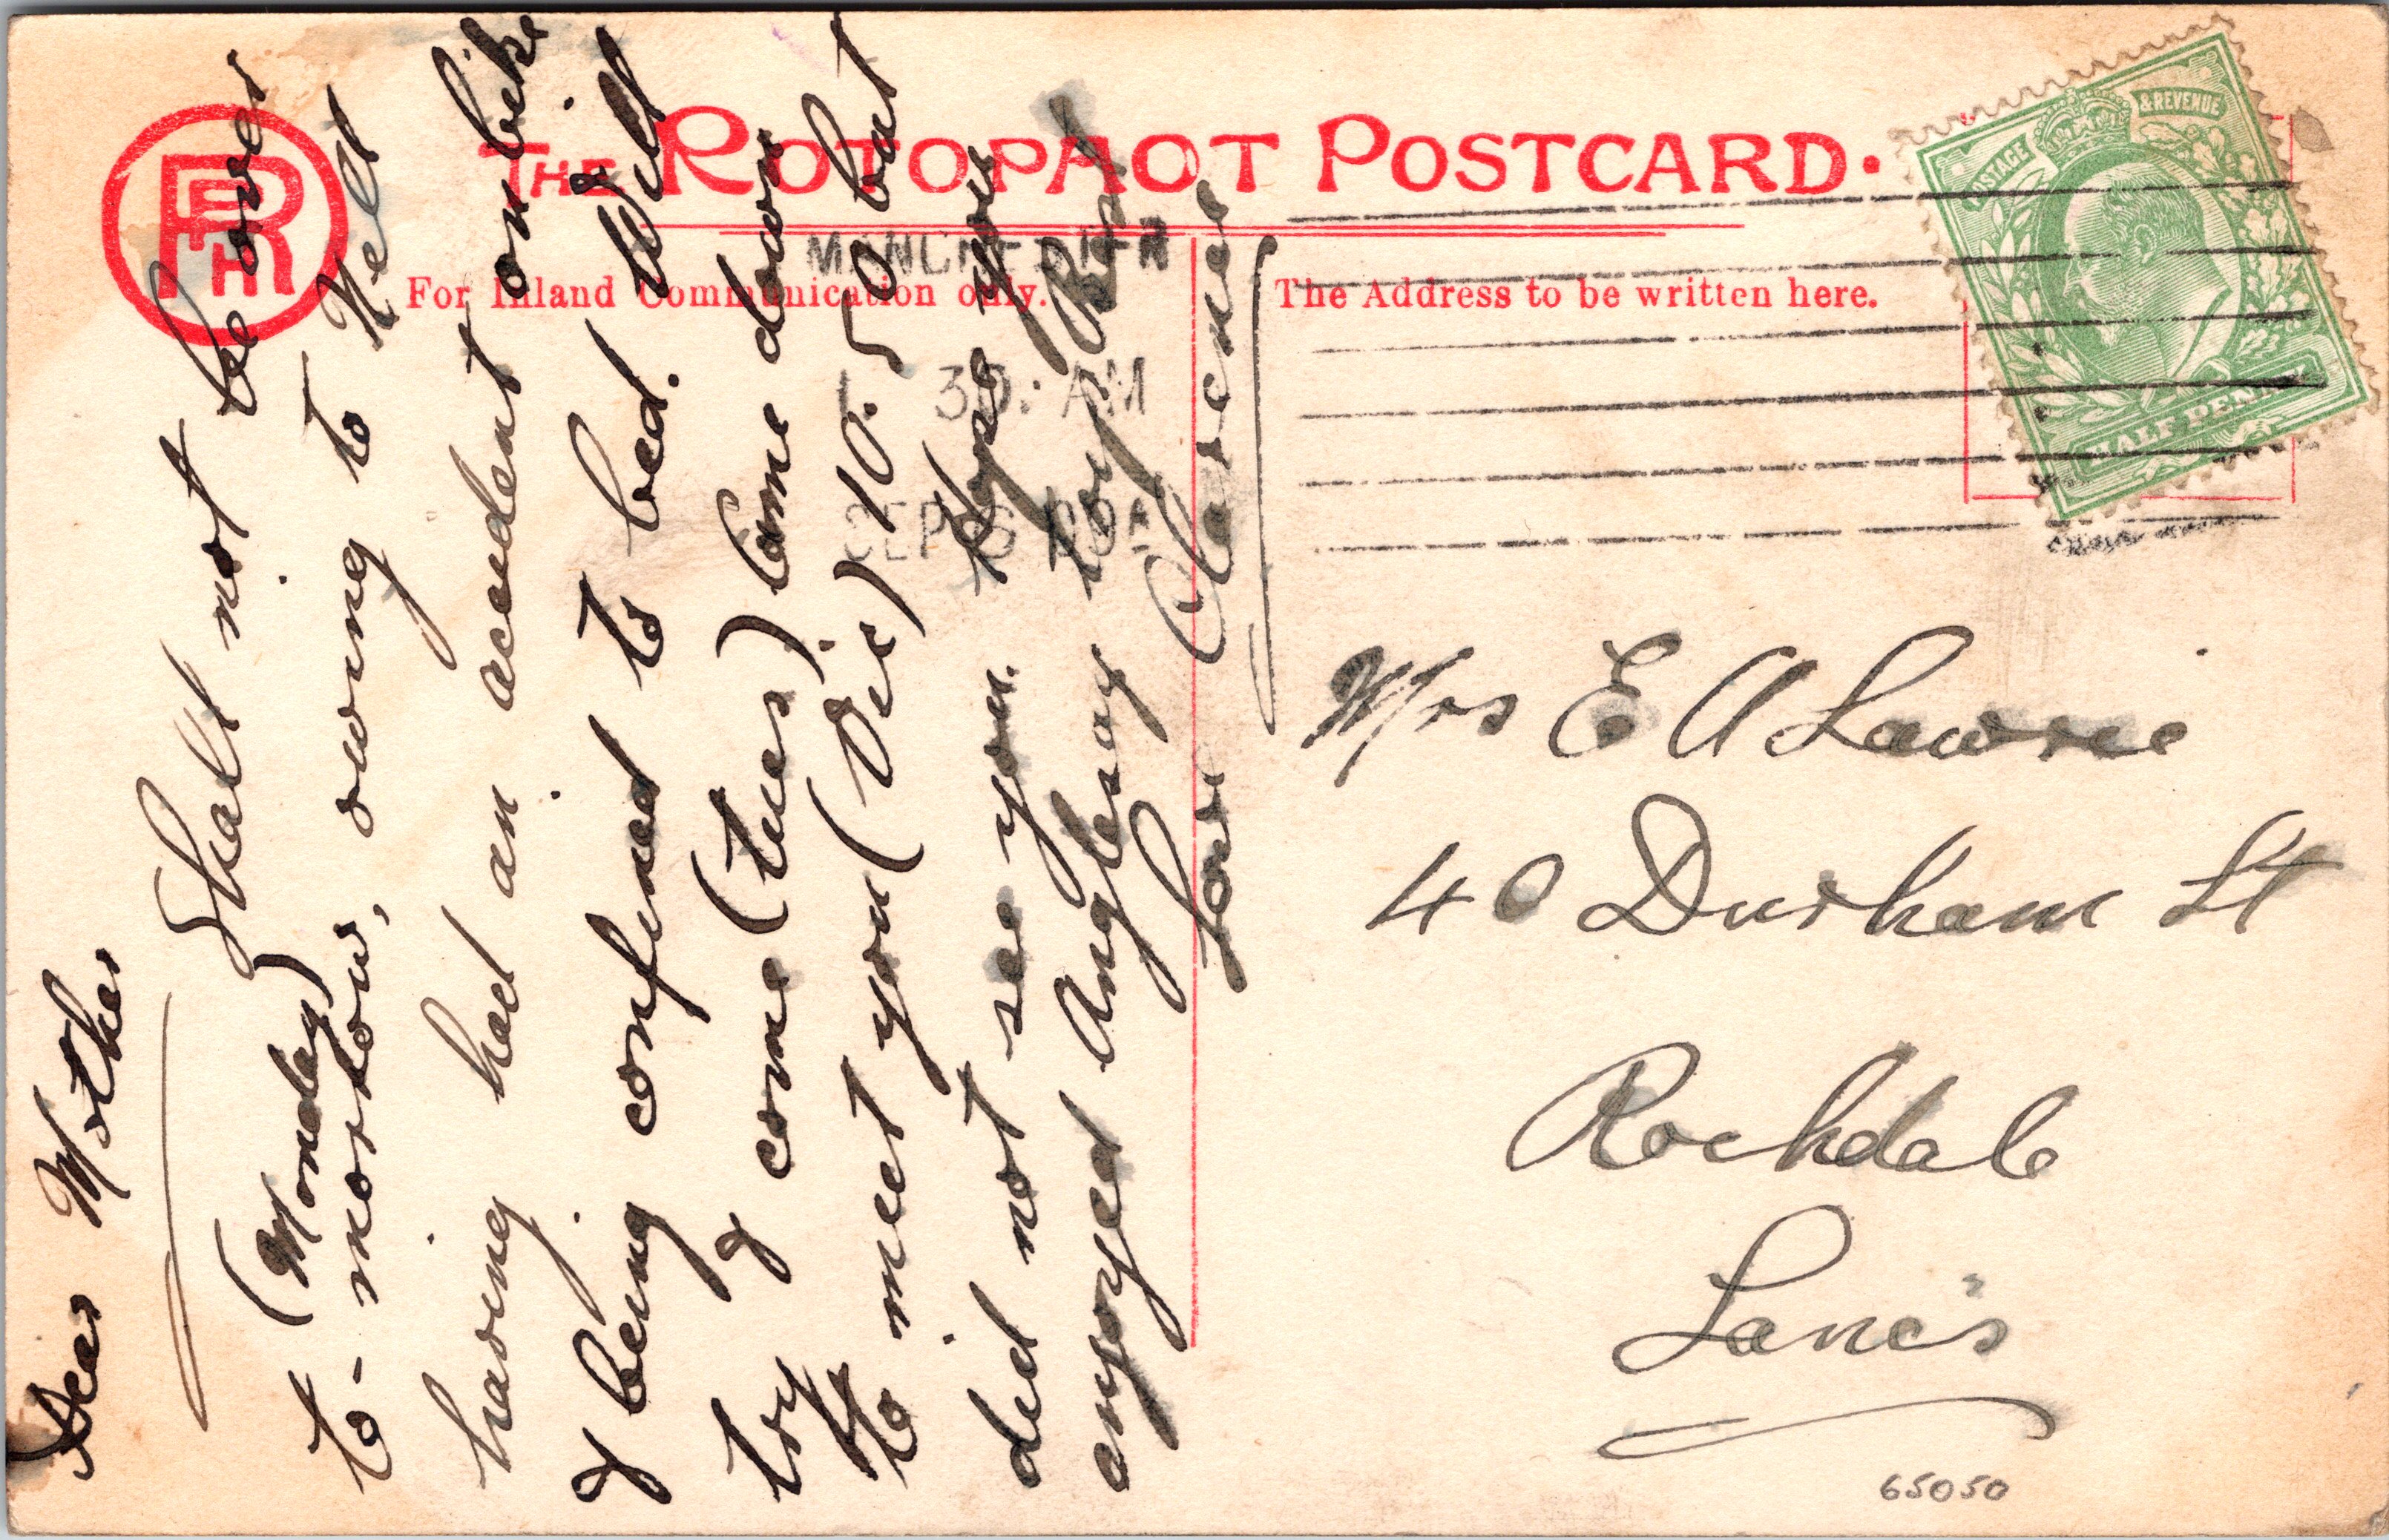 THE ROTOPHOT POSTCARD.
RPH
For Inland Communication only.
The Address to be written here.
POSTAGE & REVENUE
HALF PENNY
MANCHESTER
1 30. AM
SEP
Dear Mother
Shall not be over
(Monday)
to-morrow, owing to Nell
having had an accedent on bike
& being confined to bed. Will
try & come (tues). Came down
to meet you (Vic) 10.5 o but
did not see you. Hope you
anyoyed Anglesay toy Rept
Love Clarence
Mrs E A Lawrie
40 Durham St
Rochdale
Lanc's
65050